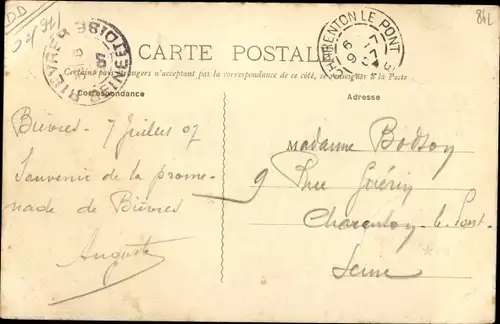 DD
BIEVRES
SEINE ET OISE
CHARENTON LE PONT
6
9 -7
07
CARTE POSTALE
Certains pays étrangers n'acceptant pas la correspondance de ce côté, se renseigner à la Poste
Correspondance
Adresse
Bièvres - 7 Juillet 07
Souvenir de la prome-
nade de Bièvres
Auguste
Madame Bodsoy
9 Rue Guérin
Charenton-le-Pont
Seine